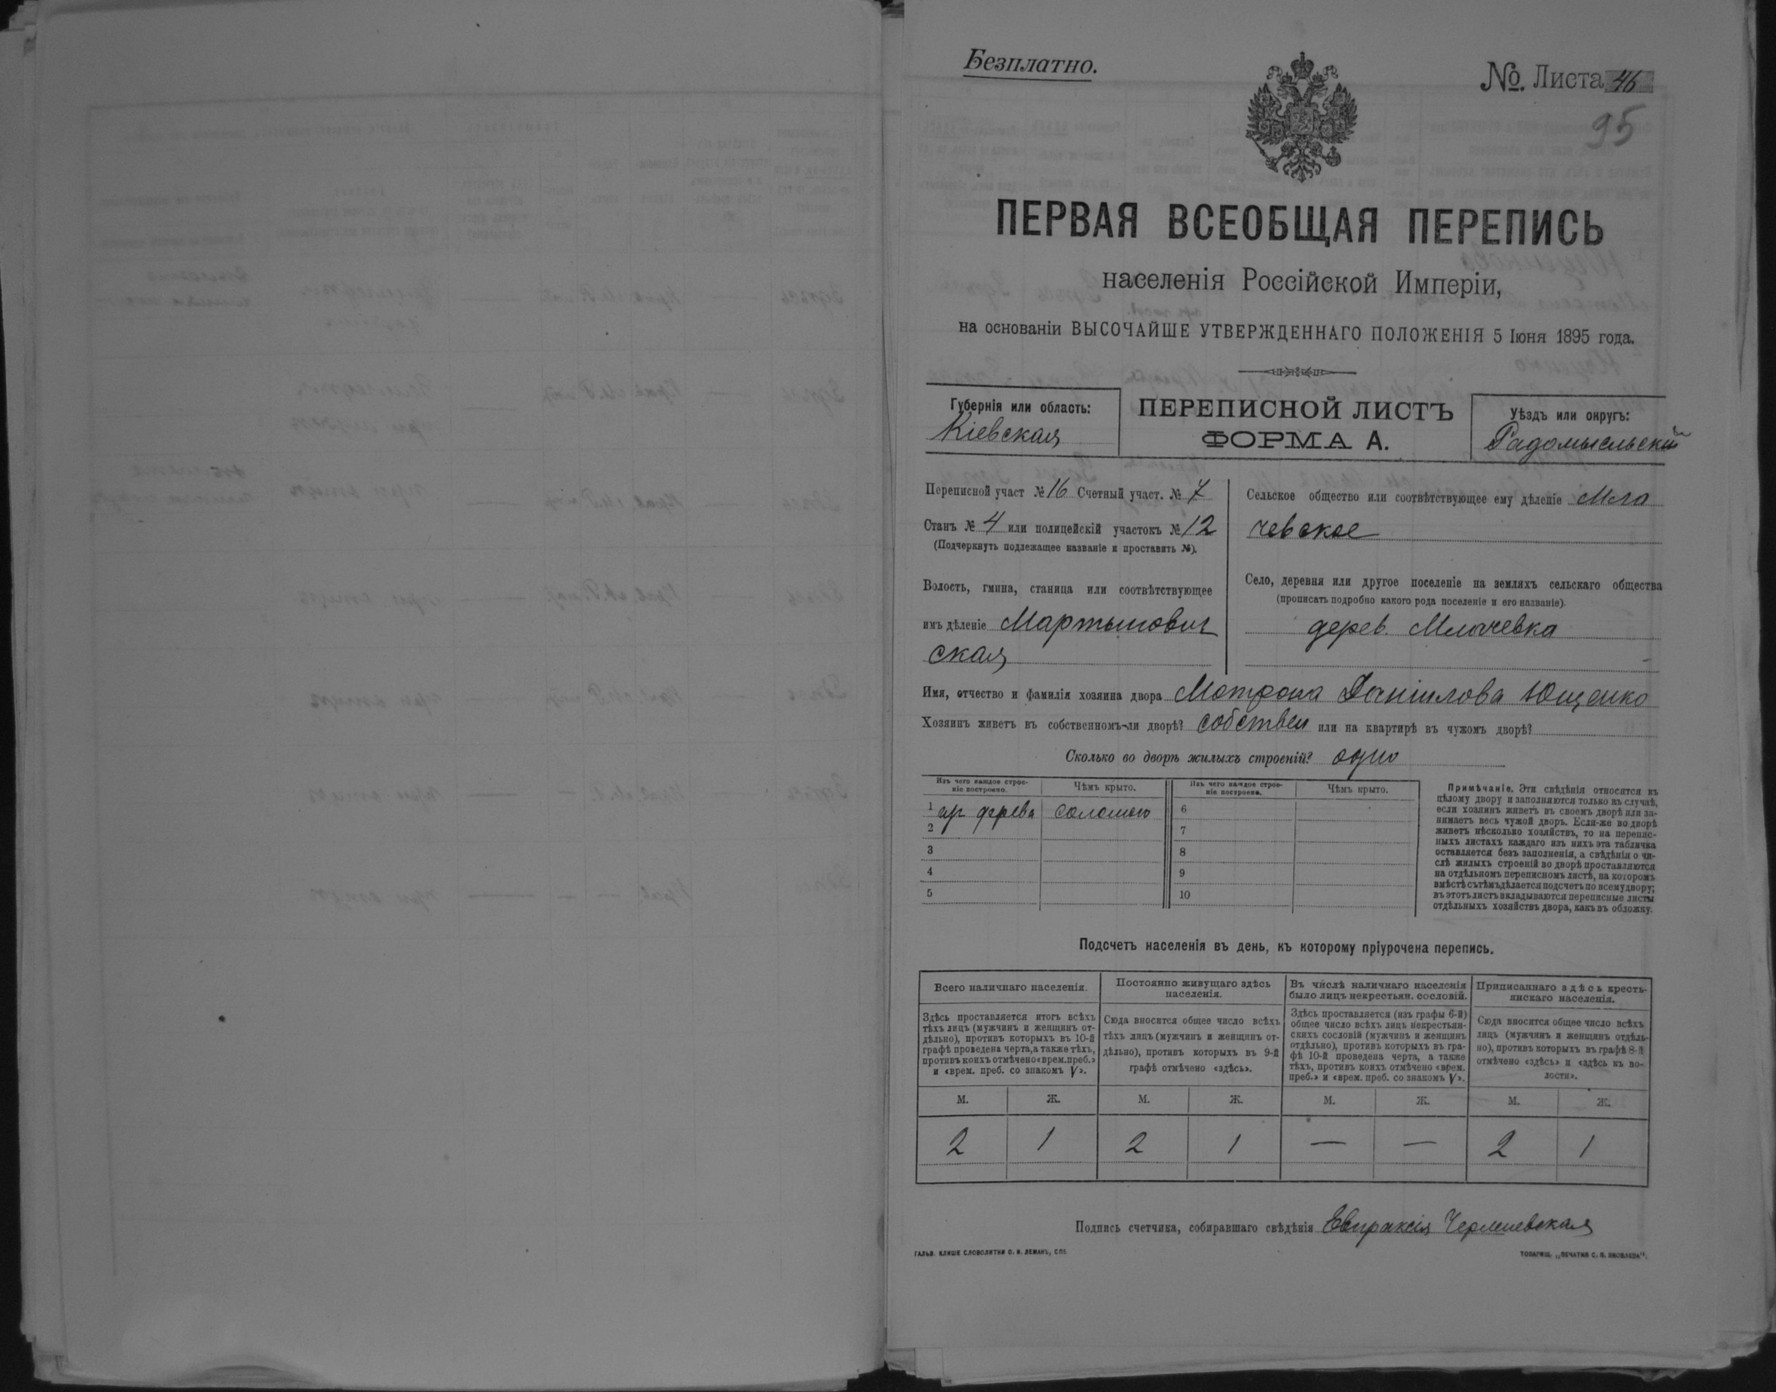 Безплатно.
№. Листа 46
95
ПЕРВАЯ ВСЕОБЩАЯ ПЕРЕПИСЬ
населенія Россійской Имперіи,
на основаніи ВЫСОЧАЙШЕ УТВЕРЖДЕННАГО ПОЛОЖЕНІЯ 5 Іюня 1895 года.
Губернія или область:
Кіевская
ПЕРЕПИСНОЙ ЛИСТЪ
ФОРМА А.
Уѣздъ или округъ:
Радомысльскій
Переписной участ № 16 Счетный участ. № 7
Станъ № 4 или полицейскій участокъ № 12
(Подчеркнуть подлежащее названіе и проставить №).
Волость, гмина, станица или соотвѣтствующее
имъ дѣленіе Мартынович
ская
Сельское общество или соотвѣтствующее ему дѣленіе Мла
чевское
Село, деревня или другое поселеніе на земляхъ сельскаго общества
(прописать подробно какого рода поселеніе и его названіе).
дерев. Млачевка
Имя, отчество и фамилія хозяина двора Мотрона Даниилова Ющенко
Хозяинъ живетъ въ собственномъ-ли дворѣ? собствен или на квартирѣ въ чужомъ дворѣ?
Сколько во дворѣ жилыхъ строеній? одно
Изъ чего каждое строе-
ніе построено.
Чѣмъ крыто.
Изъ чего каждое строе-
ніе построено.
Чѣмъ крыто.
1 дерева соломою 6
2 7
3 8
4 9
5 10
Примѣчаніе. Эти свѣдѣнія относятся къ
цѣлому двору и заполняются только въ случаѣ,
если хозяинъ живетъ въ своемъ дворѣ или за-
нимаетъ весь чужой дворъ. Если-же во дворѣ
живетъ нѣсколько хозяйствъ, то на перепис-
ныхъ листахъ каждаго изъ нихъ эта табличка
оставляется безъ заполненія, а свѣдѣнія о чи-
слѣ жилыхъ строеній во дворѣ проставляются
на отдѣльномъ переписномъ листѣ, на которомъ
вмѣстѣ съ тѣмъ дѣлается подсчетъ по всему двору;
въ этотъ листъ вкладываются переписные листы
отдѣльныхъ хозяйствъ двора, какъ въ обложку.
Подсчетъ населенія въ день, къ которому пріурочена перепись.
Всего наличнаго населенія.
Здѣсь проставляется итогъ всѣхъ
тѣхъ лицъ (мужчинъ и женщинъ от-
дѣльно), противъ которыхъ въ 10-й
графѣ проведена черта, а также тѣхъ,
противъ коихъ отмѣчено «врем. преб.»
и «врем. преб. со знакомъ V».
Постоянно живущаго здѣсь
населенія.
Сюда вносится общее число всѣхъ
тѣхъ лицъ (мужчинъ и женщинъ от-
дѣльно), противъ которыхъ въ 9-й
графѣ отмѣчено «здѣсь».
Въ числѣ наличнаго населенія
было лицъ некрестьян. сословій.
Здѣсь проставляется (изъ графы 6-й)
общее число всѣхъ лицъ некрестьян-
скихъ сословій (мужчинъ и женщинъ
отдѣльно), противъ которыхъ въ гра-
фѣ 10-й проведена черта, а также
тѣхъ, противъ коихъ отмѣчено «врем.
преб.» и «врем. преб. со знакомъ V».
Приписаннаго здѣсь кресть-
янскаго населенія.
Сюда вносится общее число всѣхъ
лицъ (мужчинъ и женщинъ отдѣль-
но), противъ которыхъ въ графѣ 8-й
отмѣчено «здѣсь» и «здѣсь къ во-
лости».
М. Ж. М. Ж. М. Ж. М. Ж.
2 1 2 1 — — 2 1
Подпись счетчика, собиравшаго свѣдѣнія Евпраксія
ГАЛЬВ. КЛИШЕ СЛОВОЛИТНИ О. И. ЛЕМАНЪ, СПБ.
ТОВАРИЩ. „ПЕЧАТНЯ С. П. ЯКОВЛЕВА“.